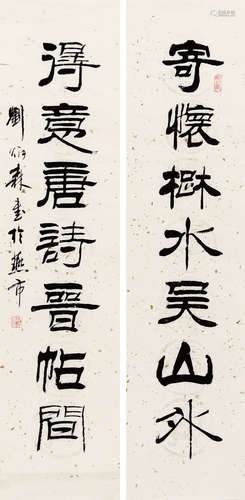 寄懷楚水吳山外
得意唐詩晉帖間
劉炳森書於燕市